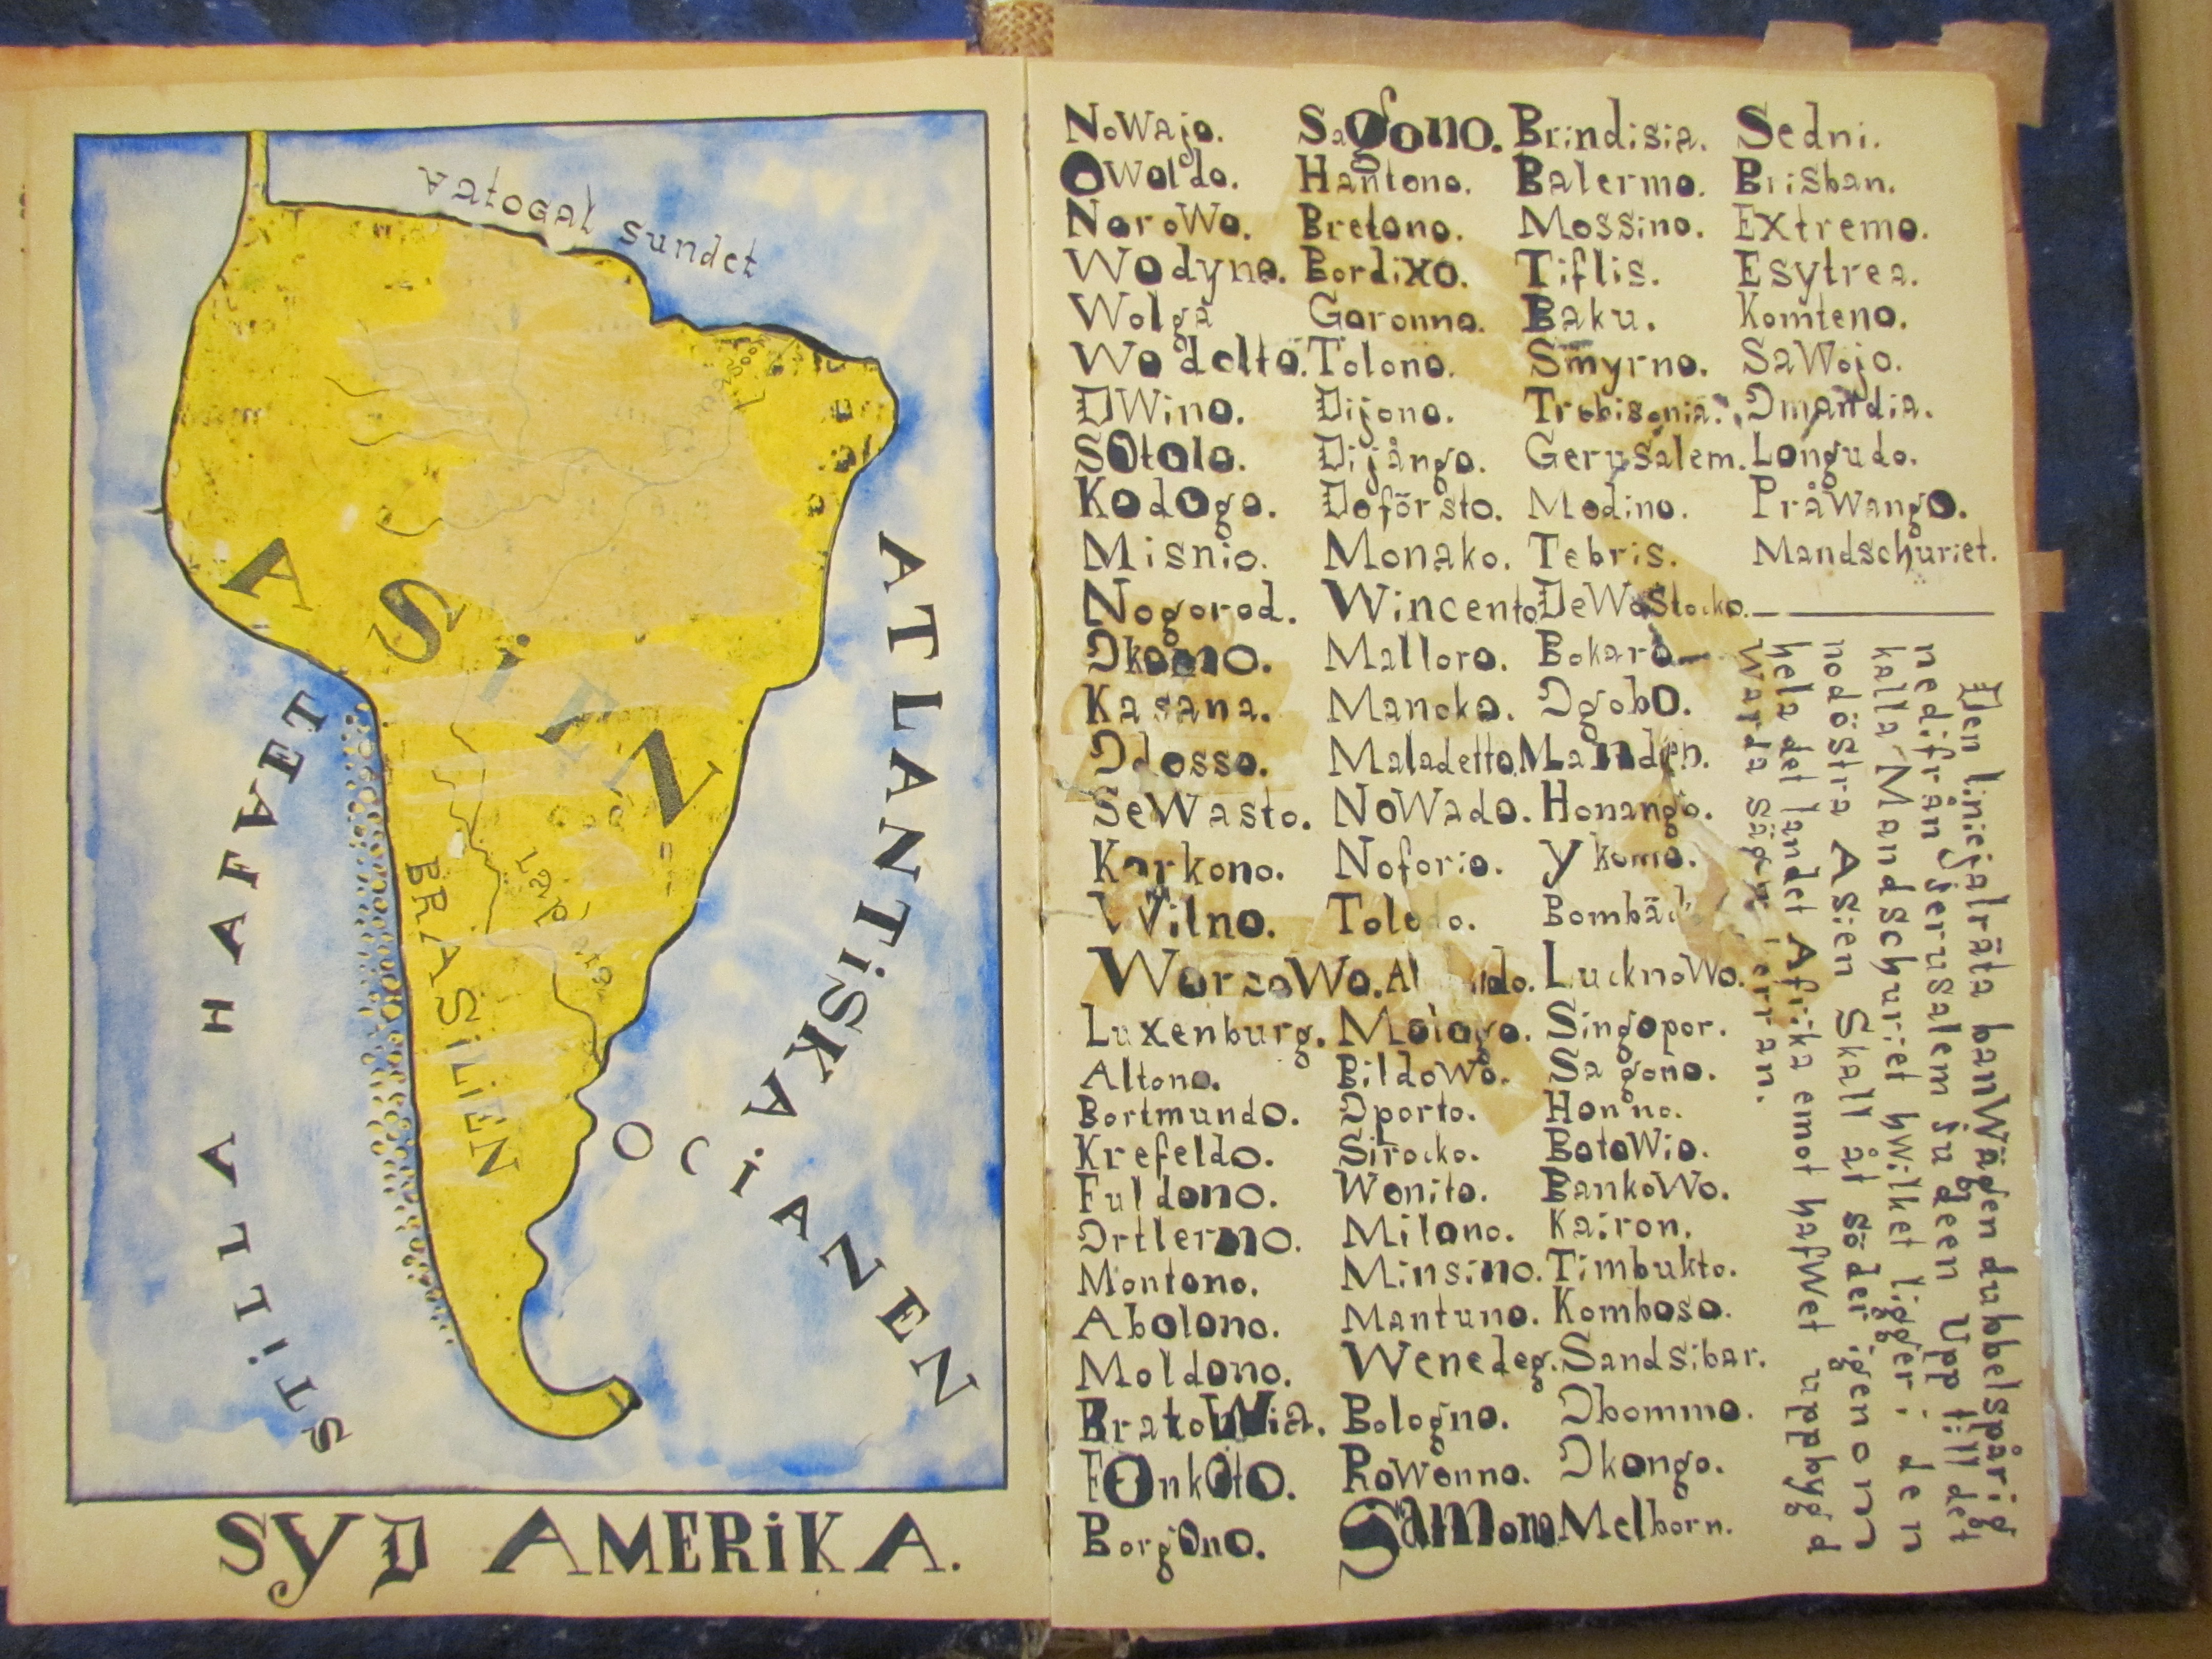 vatogal sundet
ASiEN
BRASiLiEN
STiLLA HAFVET
ATLANTiSKA OCiANEN
SYD AMERiKA.
NoWajo.
OWoldo.
NoroWo.
Wodyno.
Wolga
Wodolto.
DWino.
SOtolo.
Kodogo.
Misnio.
Nogorod.
Ikomo.
Kasana.
Idosso.
SeWasto.
Karkono.
Wilno.
WorsoWo.
Luxenburg.
Altono.
Bortmundo.
Krefeldo.
Fuldono.
Ortlermo.
Montono.
Abolono.
Moldono.
BratoWia.
FOnkOto.
BorgOno.
Sagono.
Hantono.
Bretono.
Bordixo.
Goronno.
Tolono.
Dijono.
Dijångo.
Doförsto.
Monako.
Wincento.
Malloro.
Manoko.
Maladetto.
NoWado.
Noforio.
Toledo.
Mologo.
BildoWo.
Oporto.
Sirocko.
Wonito.
Milono.
Minsino.
Mantuno.
Wenedeg.
Bologno.
RoWonno.
Samono
Brindisia.
Balermo.
Mossino.
Tiflis.
Baku.
Smyrno.
Trobisonia.
GeruSalem.
Modino.
Tebris.
DeWoStocko.
Bokaro
IgobO.
Manden.
Honango.
Ykomo.
LucknoWo.
Singopor.
Sagono.
Honno.
BotoWio.
BankoWo.
Kairon.
Timbukto.
Komboso.
Sandsibar.
Ibommo.
Ikongo.
Melborn.
Sedni.
Brisban.
Extremo.
Esytrea.
Komteno.
SaWojo.
Imandia.
Longudo.
PråWango.
Mandschuriet.
Den liniejalräta banWägen dubbelspårig
nedifrån jeruSalem judeen Upp till det
kalla Mandschuriet hwilket ligger i den
nodöstra ASien Skall åt Söder igenom
hela det landet Afrika emot hafWet uppbygd
Warda Säger